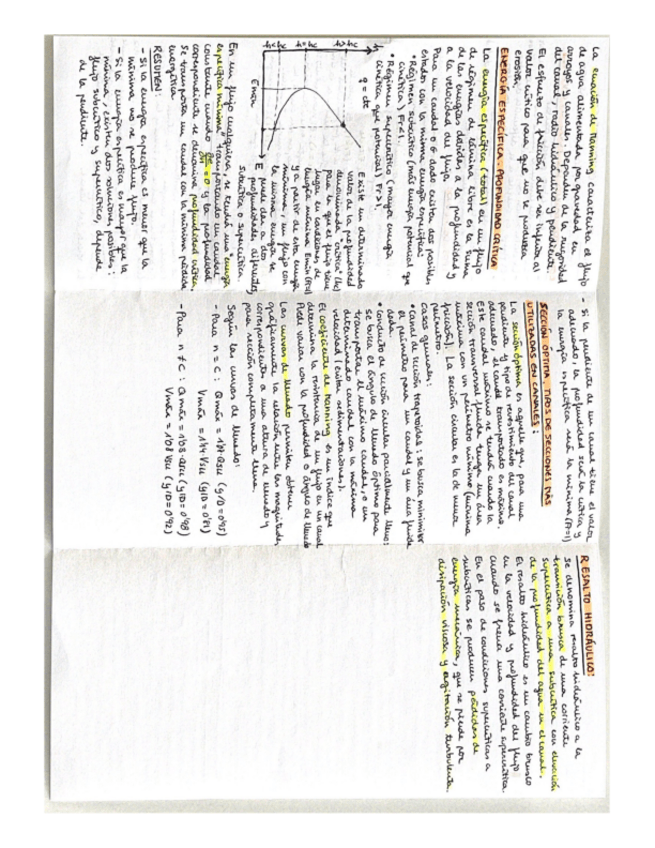 La ecuación de Manning caracteriza el flujo
de agua alimentada por gravedad en
arroyos y canales. Dependen de la rugosidad
del canal, radio hidráulico y pendiente.
El esfuerzo de fricción debe ser inferior al
valor crítico para que no se produzca
erosión.
ENERGÍA ESPECÍFICA. PROFUNDIDAD CRÍTICA
La energía específica (total) en un flujo
de régimen de lámina libre es la suma
de las energías debidas a la profundidad y
a la velocidad del flujo.
Para un caudal Q dado existen dos posibles
estados con la misma energía específica:
• Régimen subcrítico (más energía potencial que
cinética) Fr<1.
• Régimen supercrítico (mayor energía
cinética que potencial) Fr>1.
q = cte
h
h>hc
h=hc
h<hc
Emin
E
Existe un determinado
valor de la profundidad
denominada "crítica" (hc)
para la que el flujo tiene
lugar en condiciones de
energía mínima Emin (Fr=1)
y a partir de esta energía
mínima, un flujo con
la misma energía se
puede dar a dos
profundidades diferentes,
subcrítica o supercrítica
En un flujo cualquiera, se tendrá una energía
específica mínima transportando un caudal
constante cuando = 0 y la profundidad
correspondiente se denomina profundidad crítica
Se transporta un caudal con la mínima pérdida
energética.
RESUMEN:
- Si la energía específica es menor que la
mínima no se produce flujo.
- Si la energía específica es mayor que la
mínima, existen dos soluciones posibles:
flujo subcrítico y supercrítico, depende
de la pendiente.
- Si la pendiente de un canal tiene el valor
adecuado, la profundidad será la crítica y
la energía específica será la mínima (Fr=1)
SECCIÓN ÓPTIMA. TIPOS DE SECCIONES MÁS
UTILIZADAS EN CANALES:
La sección óptima es aquella que, para una
pendiente y tipo de revestimiento del canal
adecuado, el caudal transportado es máximo.
Este caudal máximo se tendrá cuando la
sección transversal fluida tenga un área
máxima con un perímetro mínimo (máxima
fricción). La sección circular es la de menor
perímetro.
Casos generales:
• Canal de sección trapezoidal: se busca minimizar
el perímetro para un caudal y un área fluida
dada.
• Conducto de sección circular parcialmente lleno:
se busca el ángulo de llenado óptimo para
transportar el máximo caudal, o un
determinado caudal con la mínima
velocidad (evitar sedimentaciones).
El coeficiente de Manning es un índice que
determina la resistencia de un flujo en un canal
Puede variar con la profundidad o ángulo de llenado
Las curvas de llenado permiten obtener
gráficamente la relación entre las magnitudes
correspondientes a una altura de llenado y
para sección completamente llena.
Según las curvas de llenado:
- Para n = C:
- Para n ≠ C:
RESALTO HIDRÁULICO:
Se denomina resalto hidráulico a la
transición brusca de una corriente
supercrítica a una subcrítica con elevación
de la profundidad del agua en el canal.
El resalto hidráulico es un cambio brusco
en la velocidad y profundidad del flujo
cuando se frena una corriente supercrítica.
En el paso de condiciones supercríticas a
subcríticas se producen pérdidas de
energía mecánica, que se pierde por
disipación viscosa y agitación turbulenta.